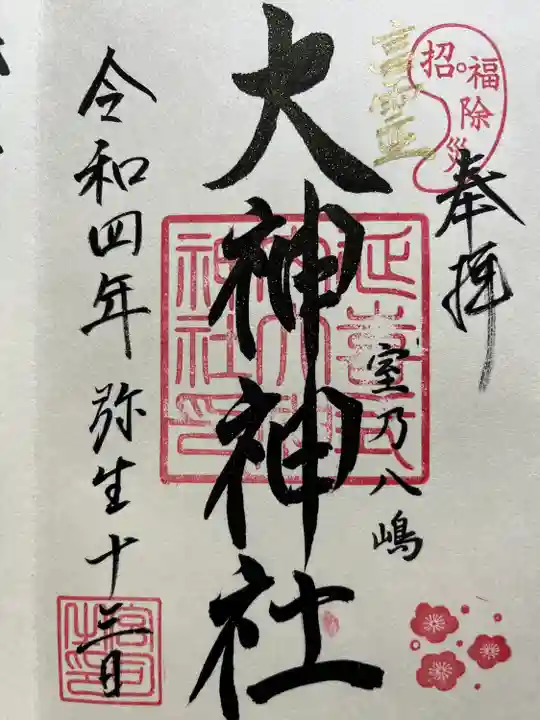 奉拝
招福除災
言霊
室乃八嶋
延喜式
大神神社
令和四年弥生十三日